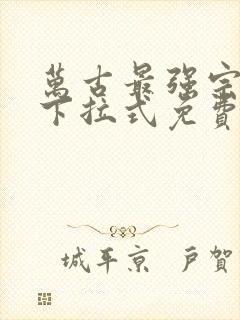 萬古最强宗
下拉式免費
城平京 戸賀